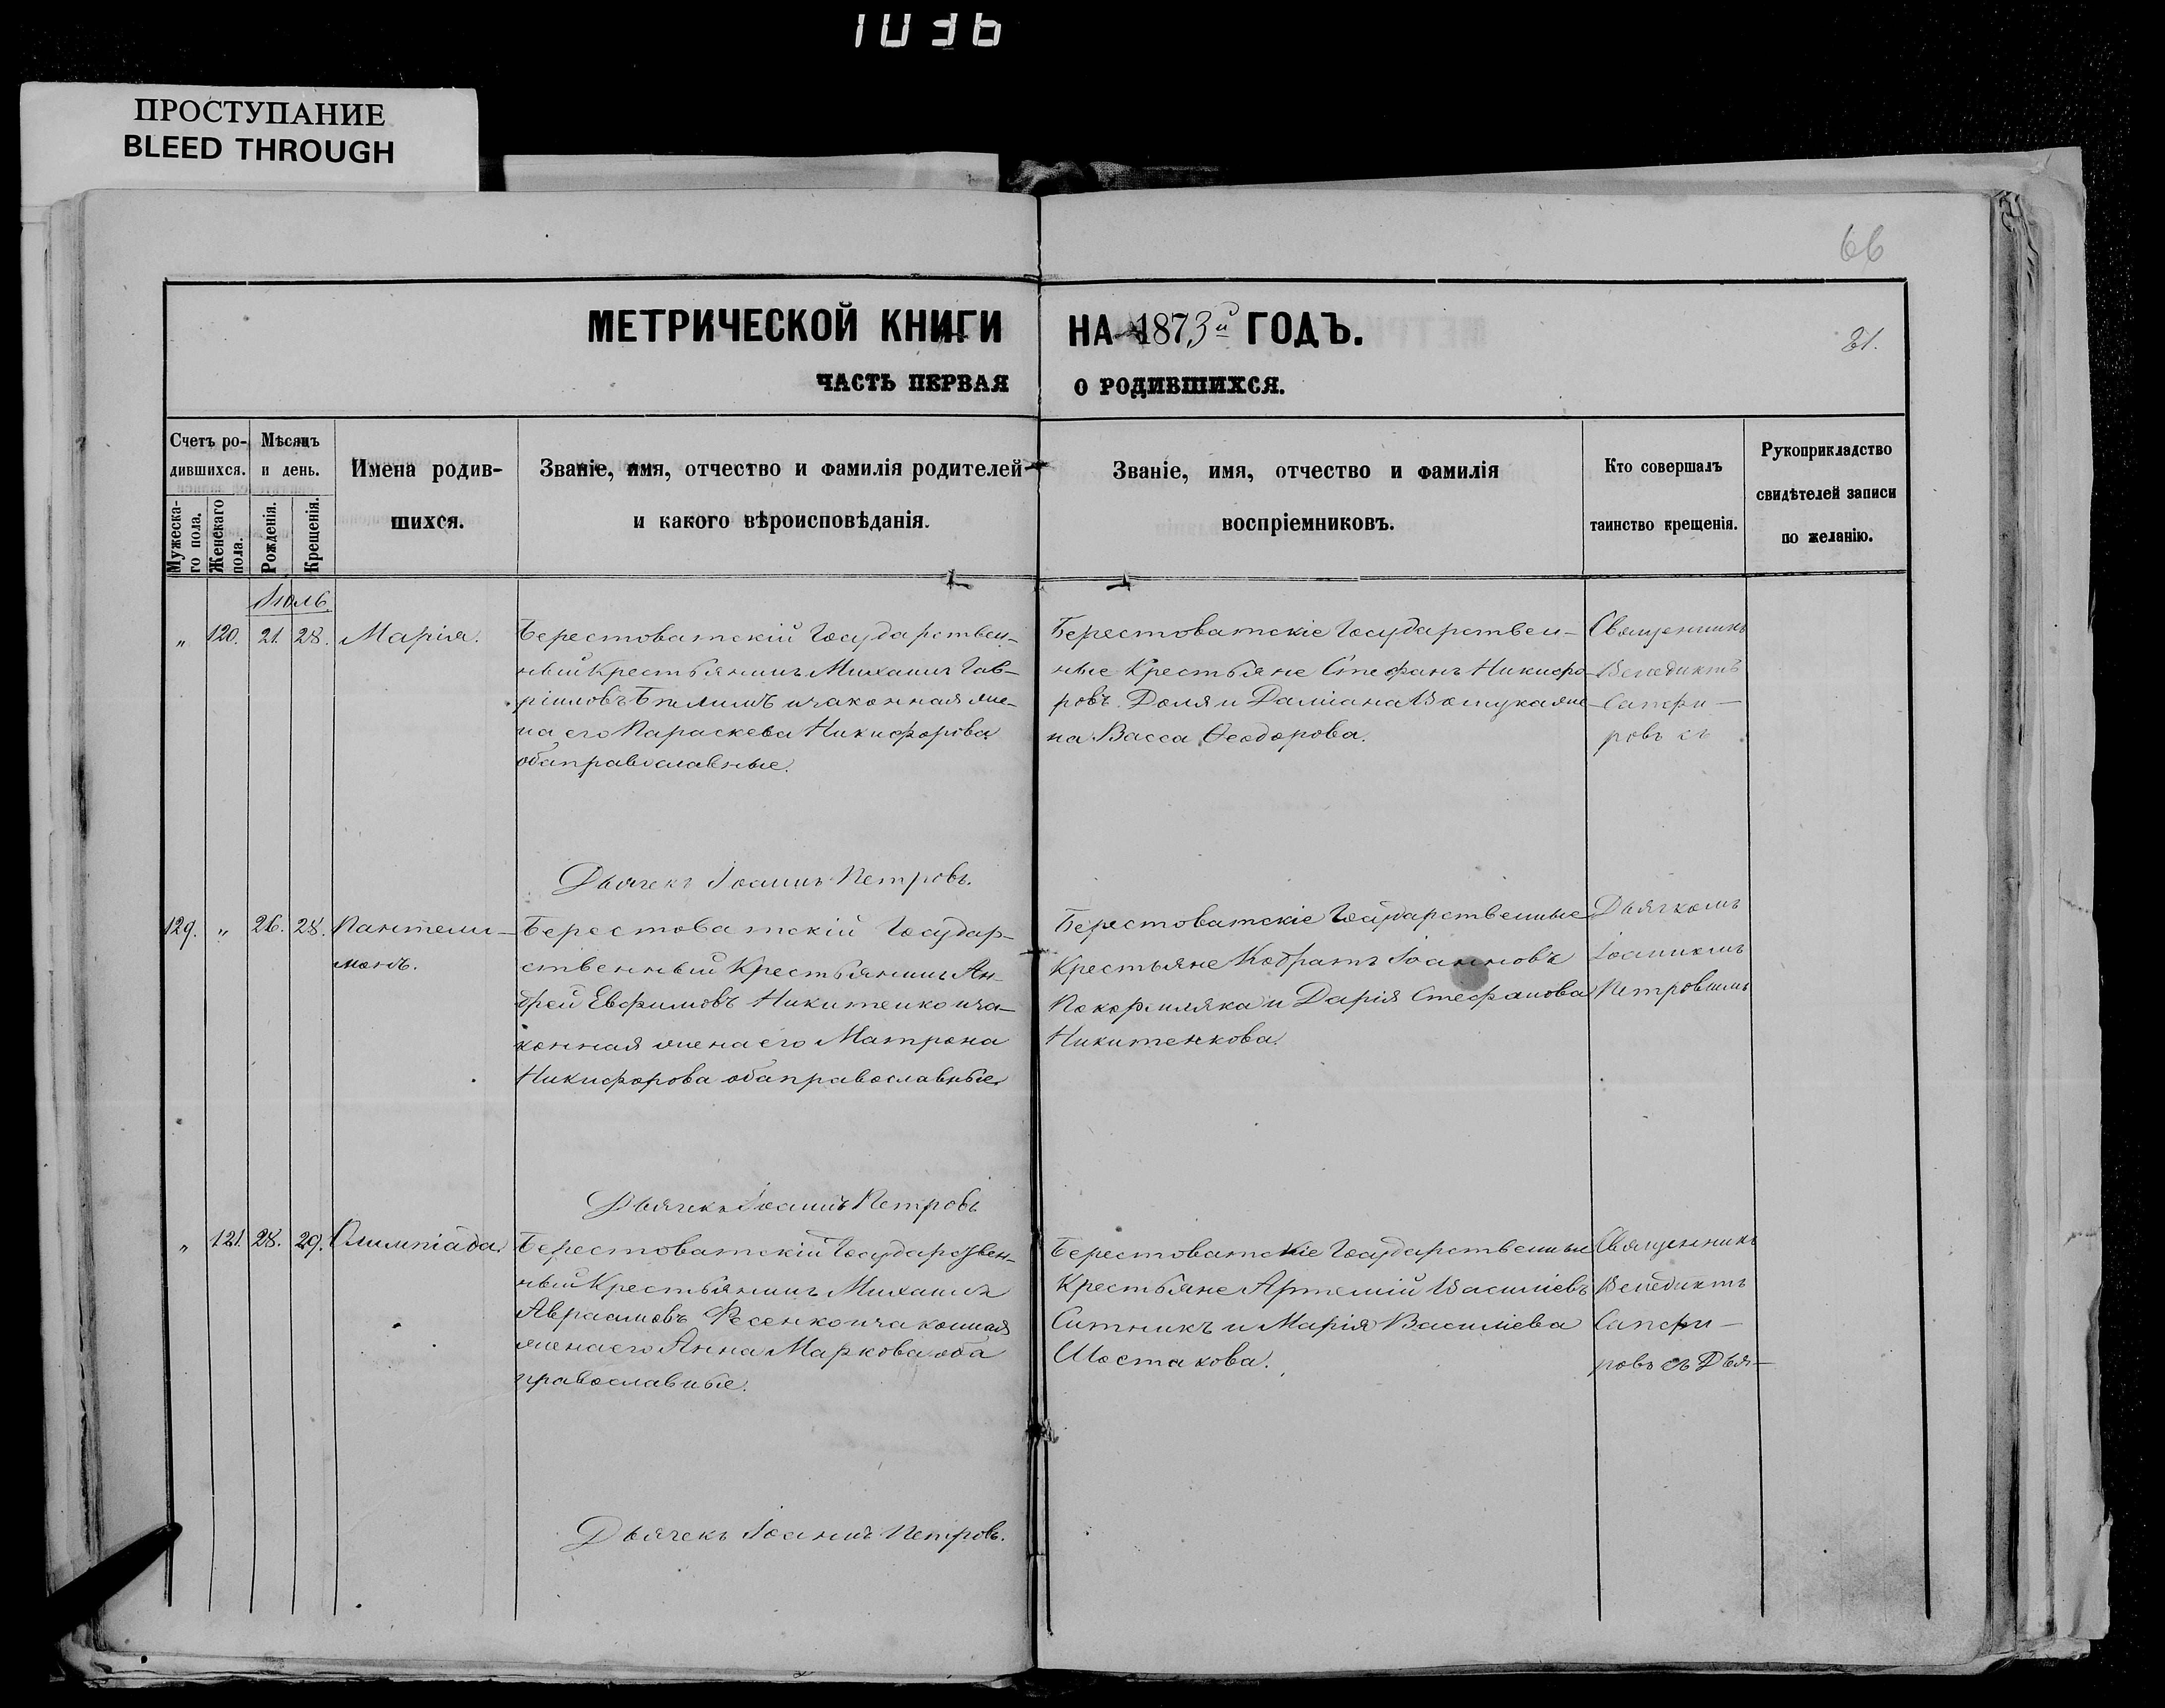 1036
ПРОСТУПАНИЕ
BLEED THROUGH
66
МЕТРИЧЕСКОЙ КНИГИ НА 1873й ГОДЪ.
21.
ЧАСТЬ ПЕРВАЯ О РОДИВШИХСЯ.
Счетъ ро-
дившихся.
Мужеска-
го пола.
Женскаго
пола.
Мѣсяцъ
и день.
Рожденія.
Крещенія.
Имена родив-
шихся.
Званіе, имя, отчество и фамилія родителей
и какого вѣроисповѣданія.
Званіе, имя, отчество и фамилія
воспріемниковъ.
Кто совершалъ
таинство крещенія.
Рукоприкладство
свидѣтелей записи
по желанію.
Іюль
„ 120. 21. 28. Марія.
Берестоватскій Государствен-
ный Крестьянинъ Михаилъ Гав-
ріиловъ и законная же-
на его Параскева Никифорова
оба православные.
Берестоватскіе Государствен-
ные Крестьяне Стефанъ Никифо-
ровъ Доля и Даміана Вощука же-
на Васса Ѳеодорова.
Священникъ
Венедиктъ
Сапфи-
ровъ съ
Дьячекъ Іоаннъ Петровъ.
129. „ 26. 28. Пантели-
монъ.
Берестоватскій Государ-
ственный Крестьянинъ Ан-
дрей Евфимовъ Никитенко и за-
конная жена его Матрона
Никифорова оба православные
Берестоватскіе Государственные
Крестьяне Кодратъ Іоанновъ
и Дарія Стефанова
Никитенкова.
Дьячкомъ
Іоанномъ
Петровымъ
Дьячекъ Іоаннъ Петровъ
„ 121. 28. 29. Олимпіада.
Берестоватскій Государствен-
ный Крестьянинъ Михаилъ
Авраамовъ Фесенко и законная
жена его Анна Маркова оба
православные.
Берестоватскіе Государственные
Крестьяне Артемій Василіевъ
Ситникъ и Марія Василіева
Шостакова.
Священникъ
Венедиктъ
Сапфи-
ровъ съ Дья-
Дьячекъ Іоаннъ Петровъ.